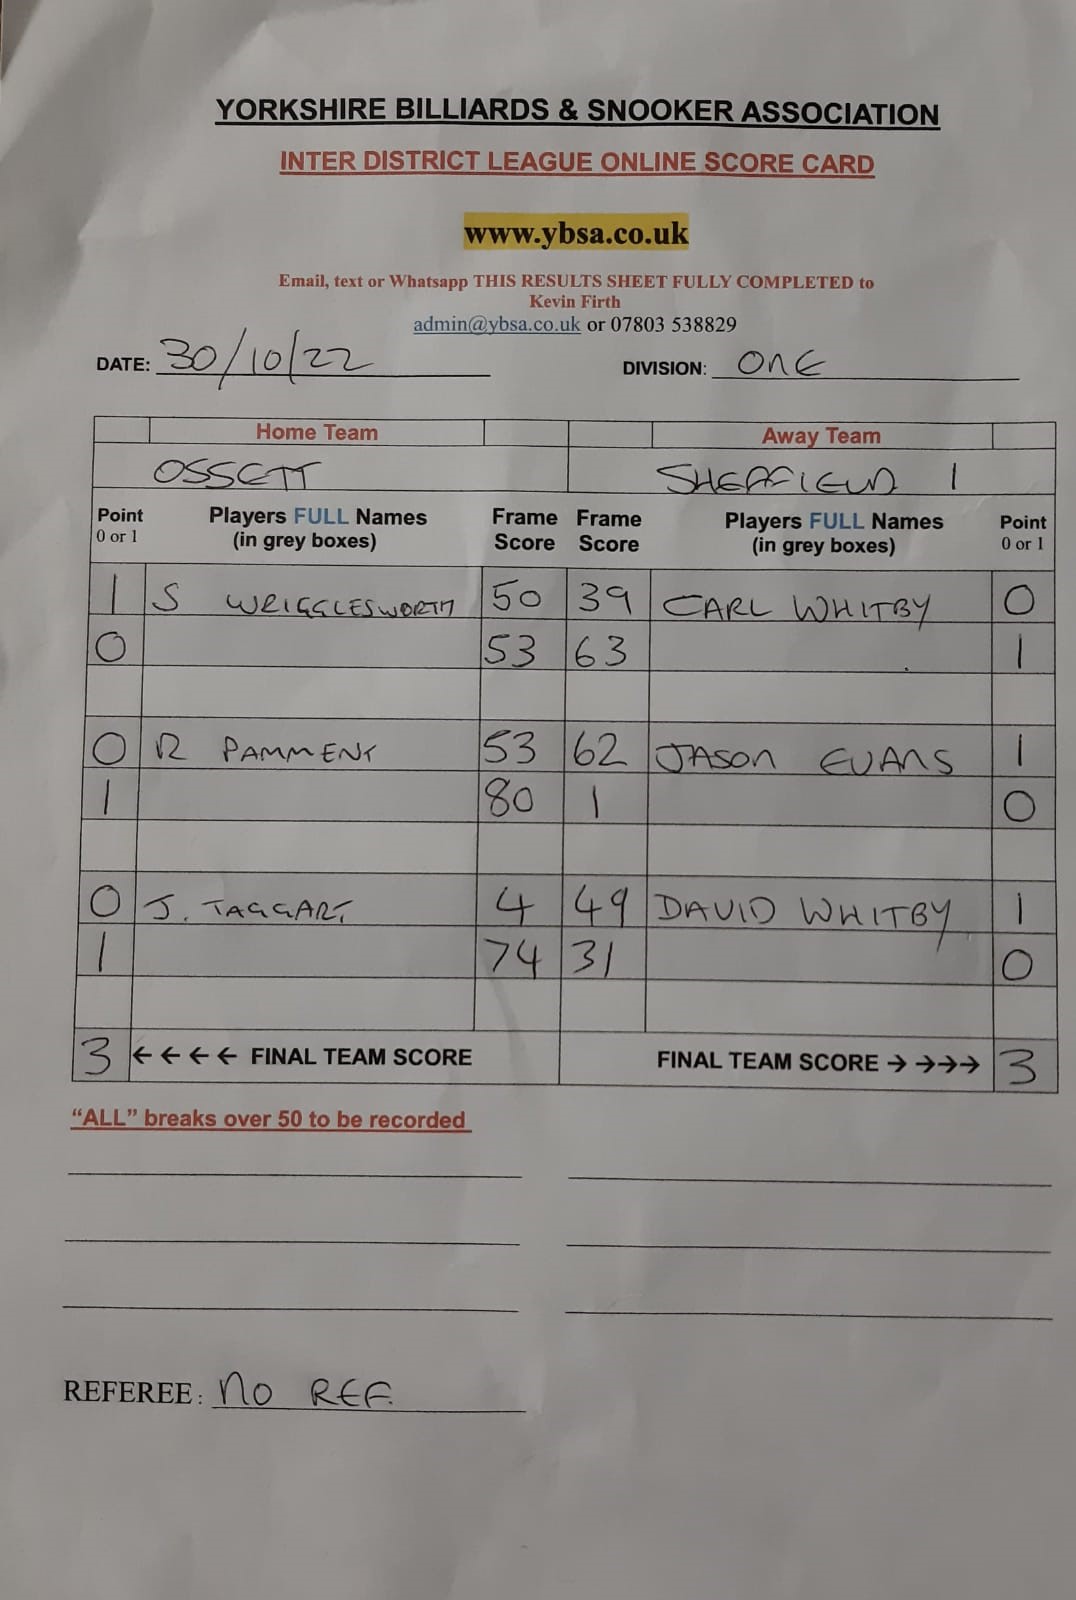 YORKSHIRE BILLIARDS & SNOOKER ASSOCIATION
INTER DISTRICT LEAGUE ONLINE SCORE CARD
www.ybsa.co.uk
Email, text or Whatsapp THIS RESULTS SHEET FULLY COMPLETED to
Kevin Firth
admin@ybsa.co.uk or 07803 538829
DATE: 30/10/22 DIVISION: ONE
Home Team Away Team
OSSETT SHEFFIELD 1
Point Players FULL Names Frame Frame Players FULL Names Point
0 or 1 (in grey boxes) Score Score (in grey boxes) 0 or 1
1 S WRIGGLESWORTH 50 39 CARL WHITBY 0
0 53 63 1
0 R PAMMENT 53 62 JASON EVANS 1
1 80 1 0
0 J. TAGGART 4 49 DAVID WHITBY 1
1 74 31 0
3 ←←←← FINAL TEAM SCORE FINAL TEAM SCORE → →→→ 3
“ALL” breaks over 50 to be recorded
REFEREE: NO REF.